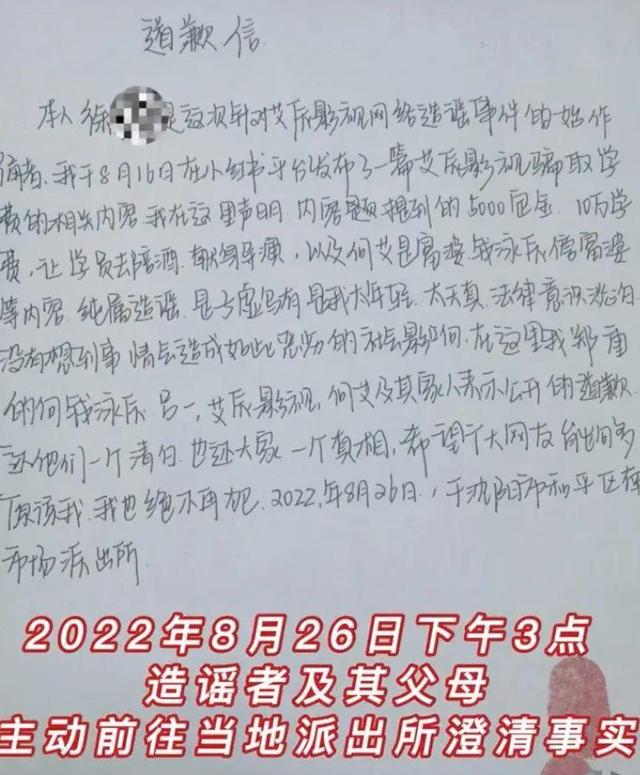 道歉信
本人徐 是这次针对艾辰影视网络造谣事件的始作
俑者、我于8月16日在小红书平台发布了一篇艾辰影视骗取学
费的相关内容.我在这里声明.内容里提到的5000定金.10万学
费,让学员去陪酒.献身导演,以及何艾是富婆 钱泳辰傍富婆
等内容.纯属造谣.是子虚乌有是我太年轻.太天真.法律意识淡泊.
没有想到事情会造成如此恶劣的社会影响.在这里我郑重
的向钱泳辰.吕一,艾辰影视,何艾及其家人表示公开的道歉.
还他们一个清白.也还大家一个真相,希望广大网友能够多
原谅我.我也绝不再犯.2022,年8月26日,于沈阳市和平区
市场派出所.
2022年8月26日下午3点
造谣者及其父母
主动前往当地派出所澄清事实